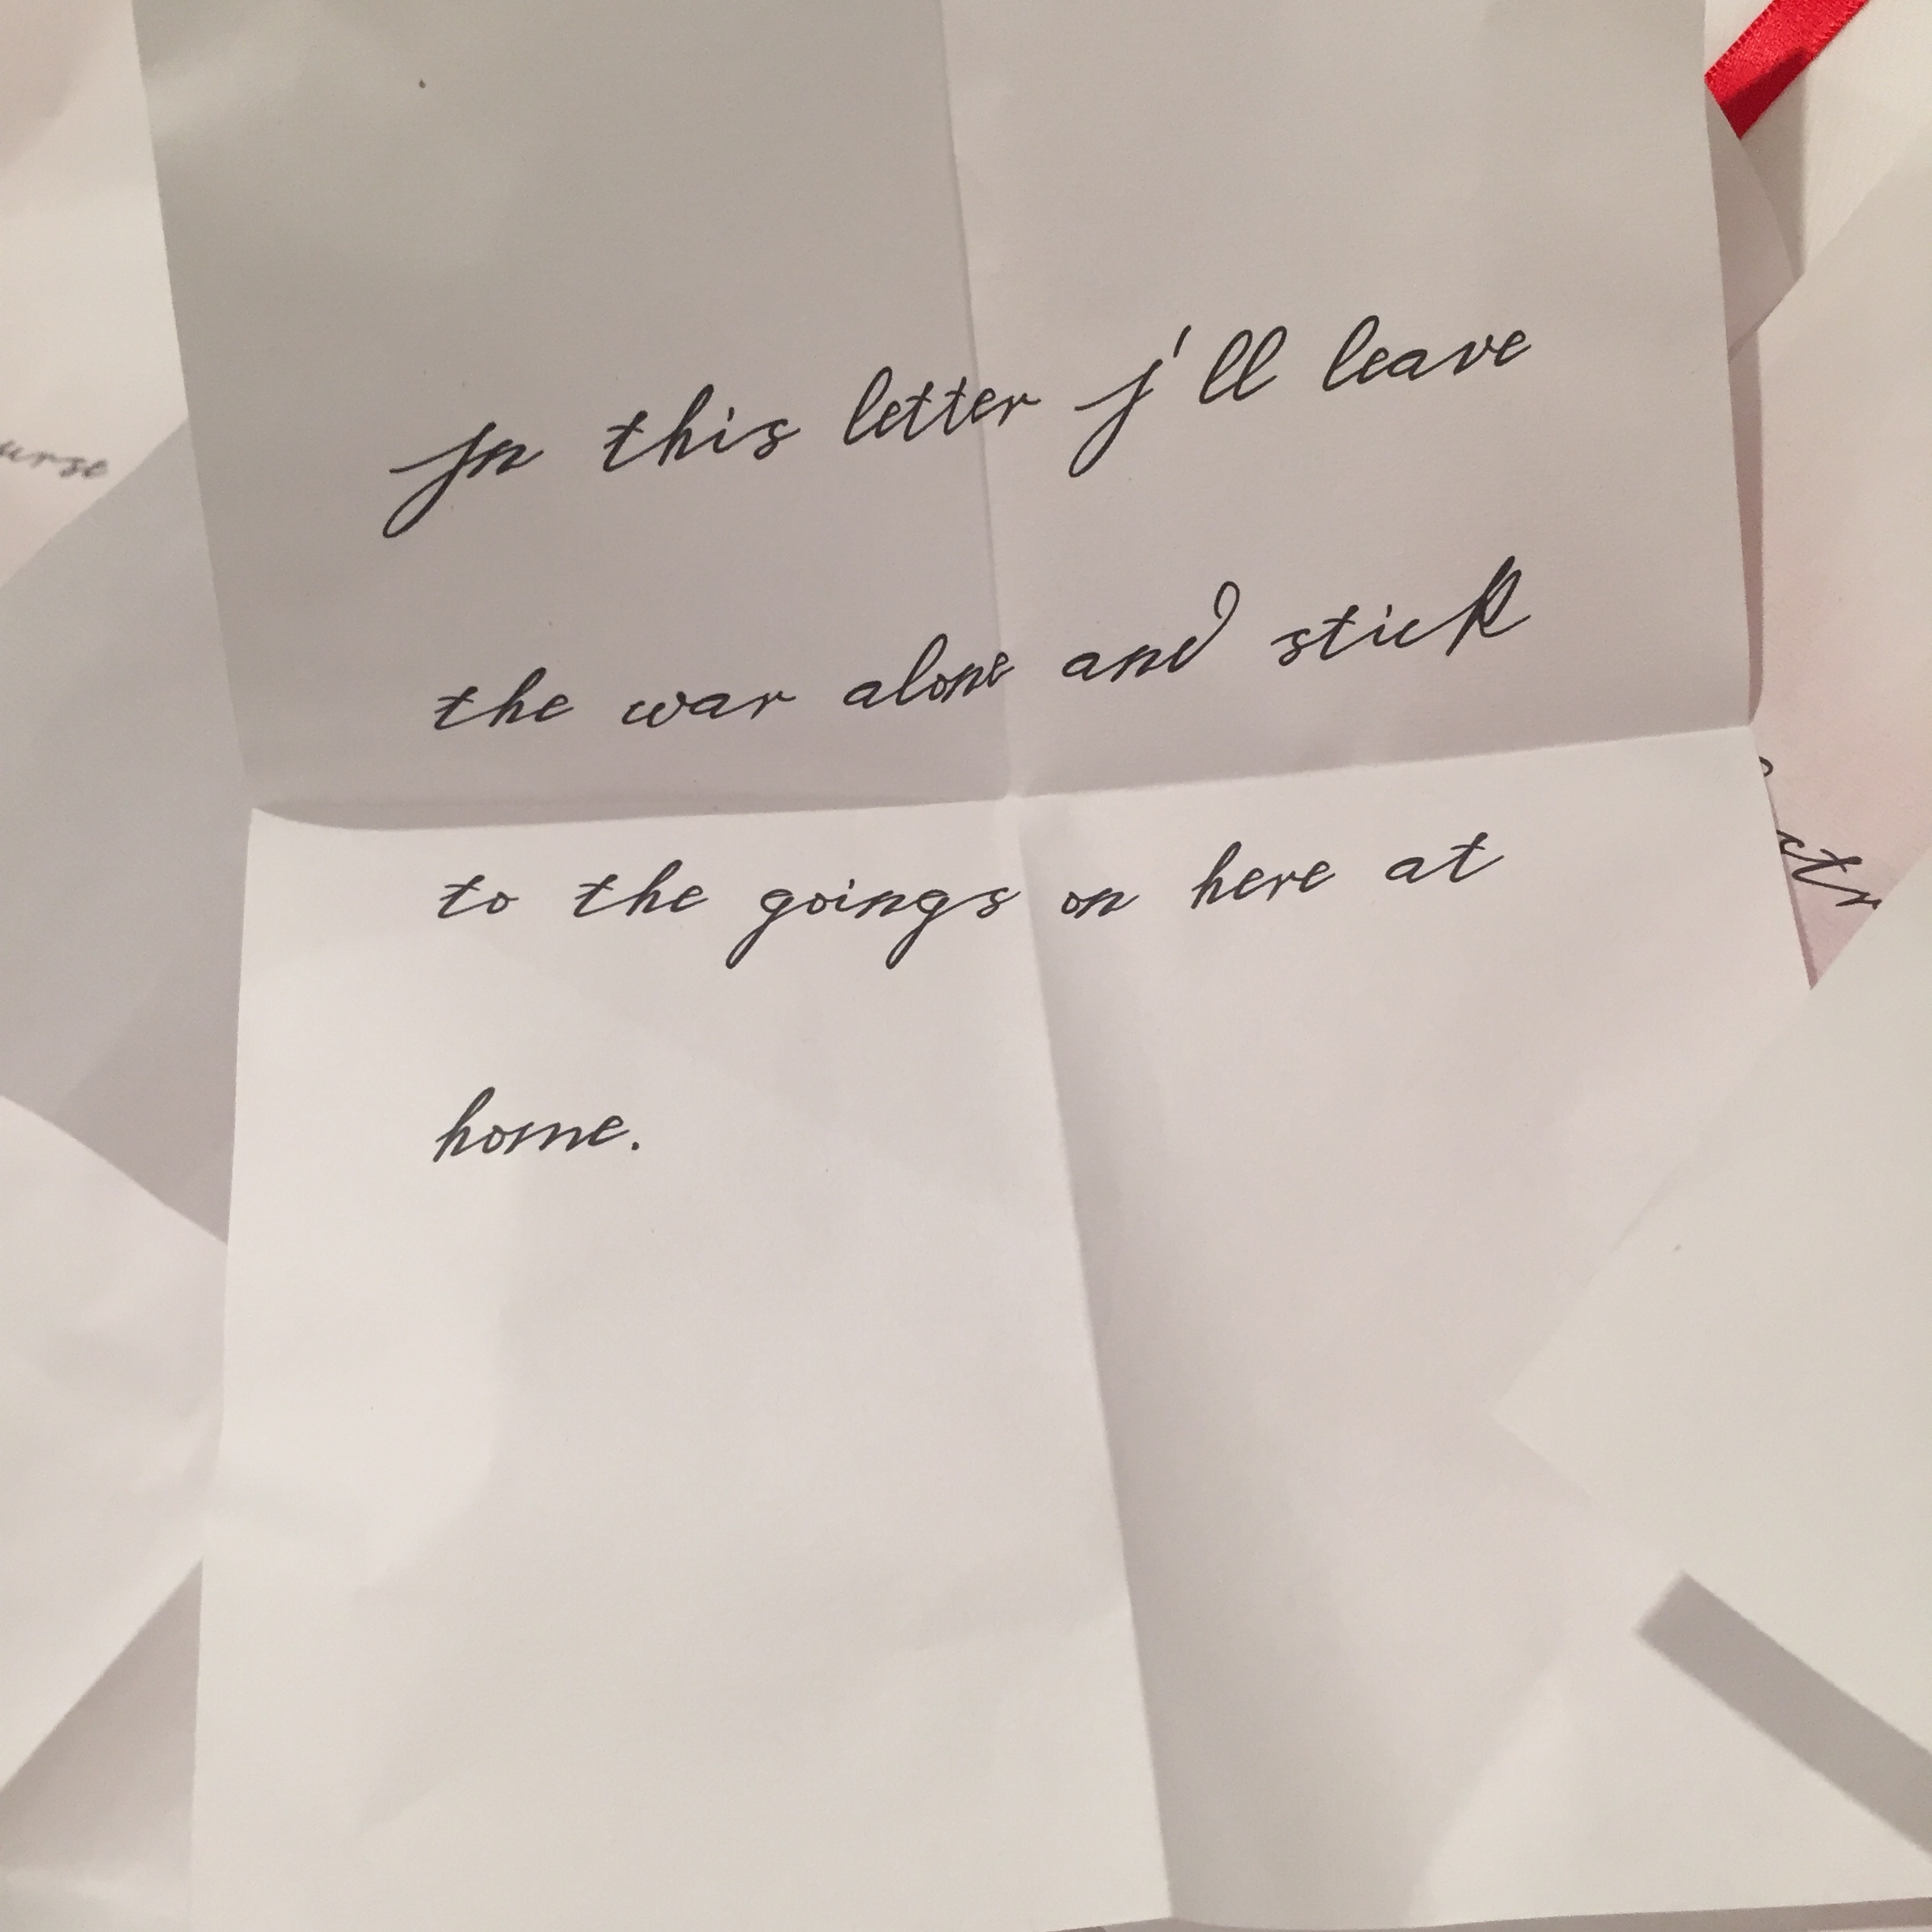 In this letter I'll leave
the war alone and stick
to the goings on here at
home.